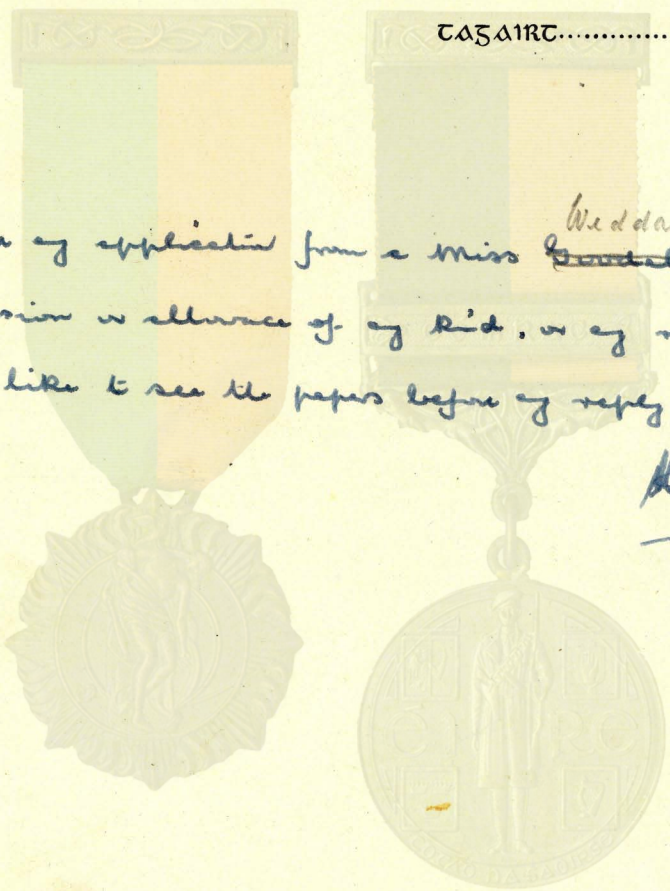 ꞇaᵹaiꞃꞇ.............
Wedda
application from a Miss
or allowance of any kind, or any
like to see the papers before any reply